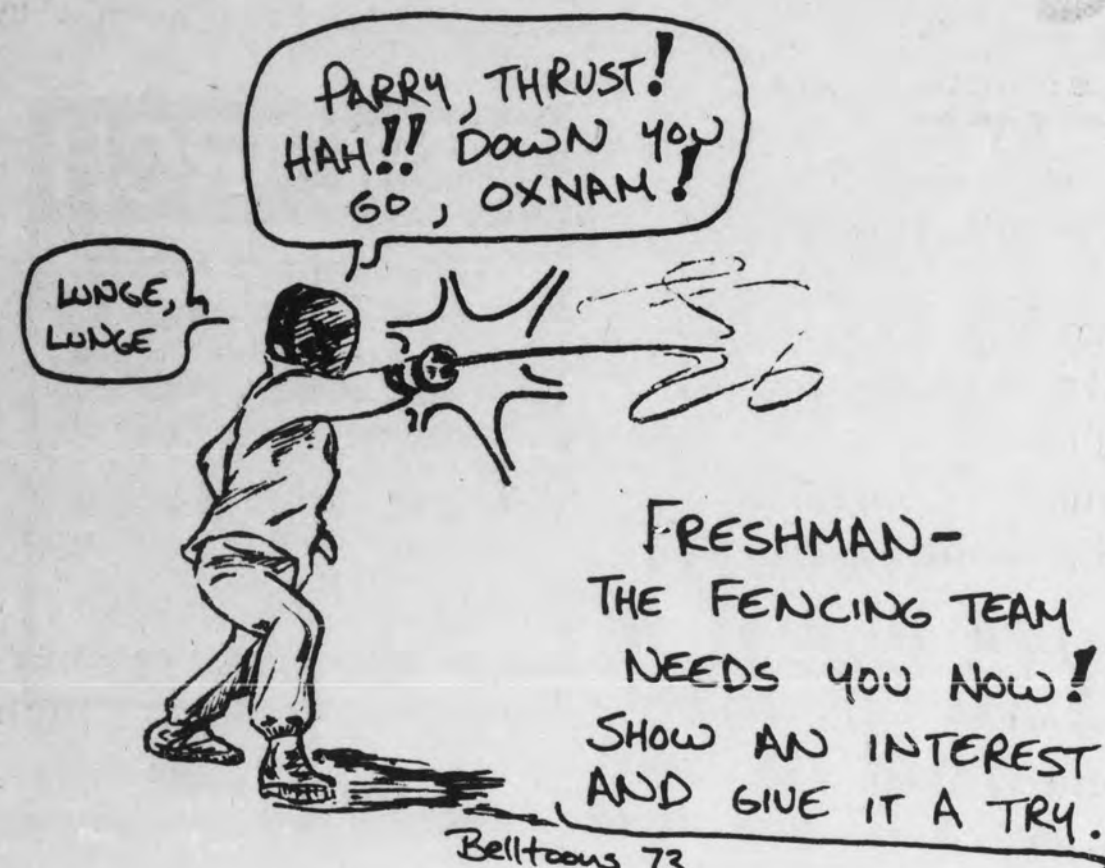 PARRY, THRUST!
HAH!! DOWN YOU
GO, OXNAM!
LUNGE,
LUNGE
FRESHMAN-
THE FENCING TEAM
NEEDS YOU NOW!
SHOW AN INTEREST
AND GIVE IT A TRY.
Belltoons 73